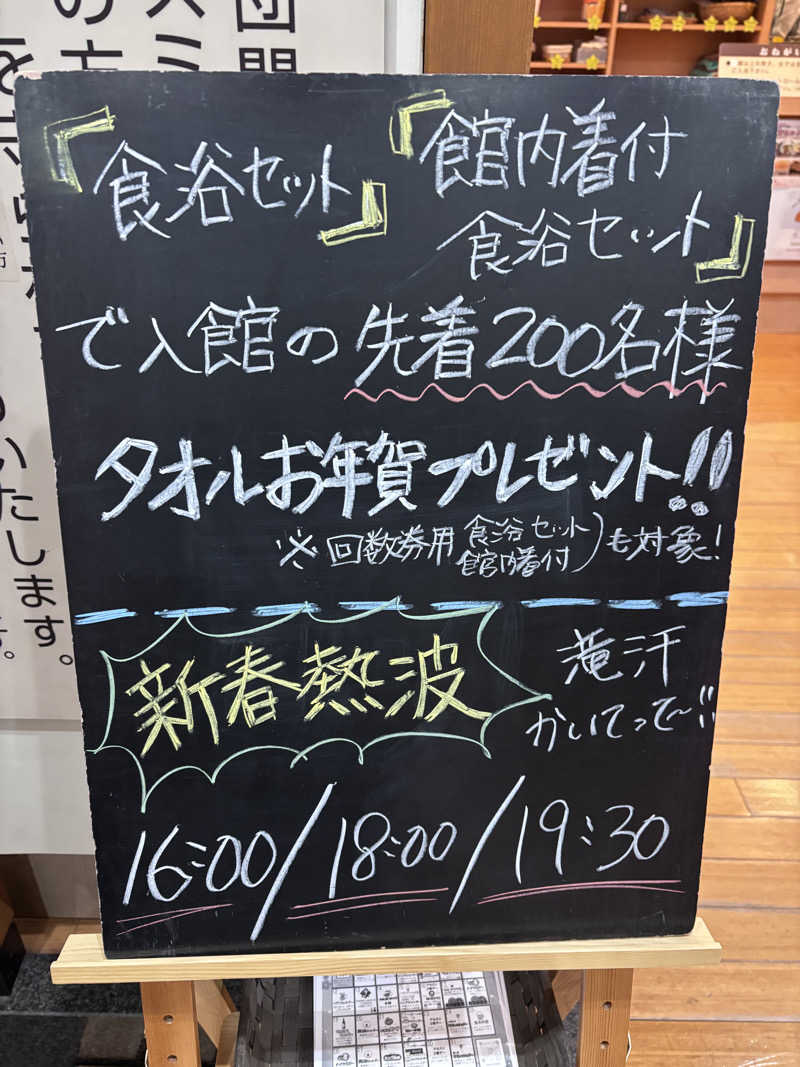 『食浴セット』
『館内着付
食浴セット』
で入館の先着200名様
タオルお年賀プレゼント!!
※回数券用 食浴セット
館内着付)も対象!
新春熱波
滝汗
かいてって~!!
16:00/18:00/19:30
いたします。